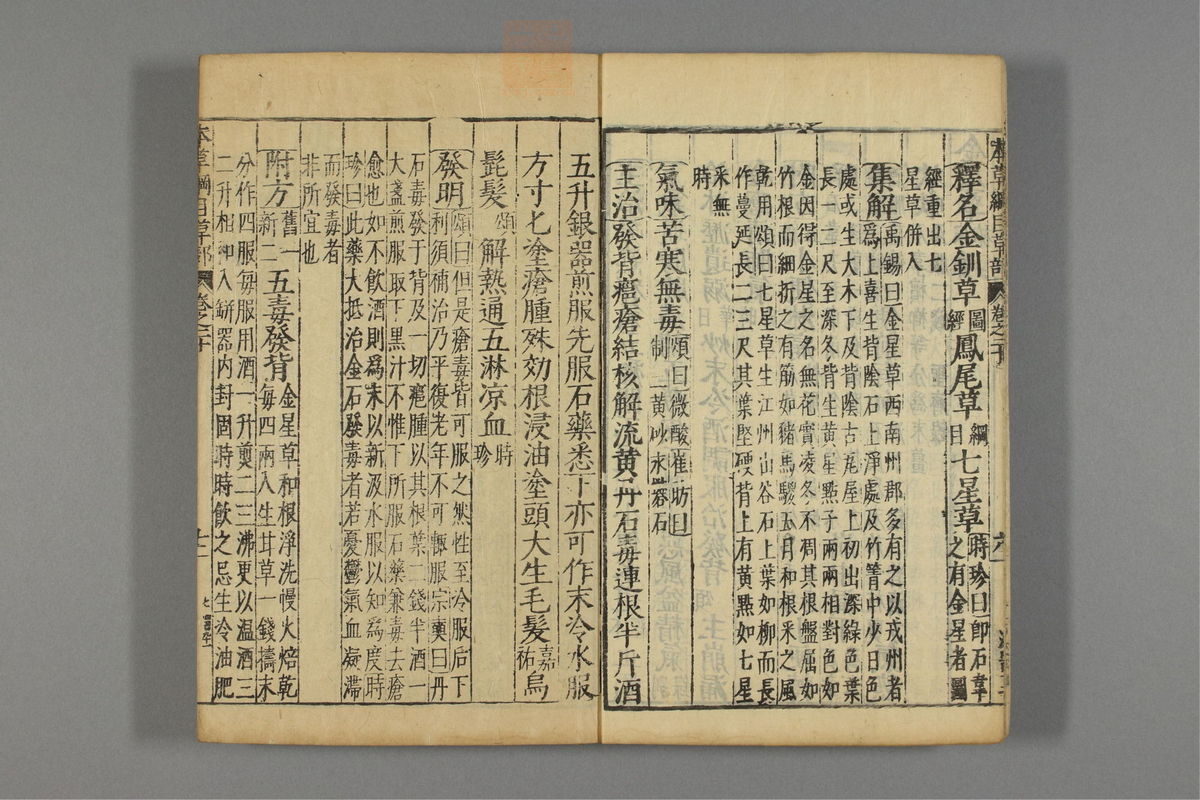 本草綱目草部 卷之二十
釋名金釧草圖經鳳尾草綱目七星草時珍曰即石韋之有金星者圖
經重出七
星草併入
集解禹錫曰金星草西南州郡多有之以戎州者
爲上喜生背陰石上淨處及竹箐中少日色
處或生大木下及背陰古屋上初出深綠色葉
長一二尺至深冬背生黄星點子兩兩相對色如
金因得金星之名無花實凌冬不凋其根盤屈如
竹根而細折之有筋如豬馬騣五月和根采之風
乾用頌曰七星草生江州山谷石上葉如柳而長
作蔓延長二三尺其葉堅硬背上有黄點如七星
采無
時
氣味苦寒無毒頌曰微酸崔昉曰制三黄砂汞礬石
主治發背癰瘡結核解流黄丹石毒連根半斤酒
五升銀器煎服先服石藥悉下亦可作末冷水服
方寸匕塗瘡腫殊効根浸油塗頭大生毛髮嘉祐烏
髭髮頌解熱通五淋凉血時珍
發明頌曰但是瘡毒皆可服之然性至冷服后下
利須補治乃平復老年不可輒服宗奭曰丹
石毒發于背及一切癰腫以其根葉二錢半酒一
大盞煎服取下黑汁不惟下所服石藥兼毒去瘡
愈也如不飲酒則爲末以新汲水服以知爲度時
珍曰此藥大抵治金石發毒者若憂鬱氣血凝滯
而發毒者
非所宜也
附方舊一新二五毒發背金星草和根淨洗慢火焙乾每四兩入生甘草一錢擣末
分作四服每服用酒一升煎二三沸更以温酒三
二升相和入缾器内封固時時飲之忌生冷油肥
本草綱目草部 卷之二十